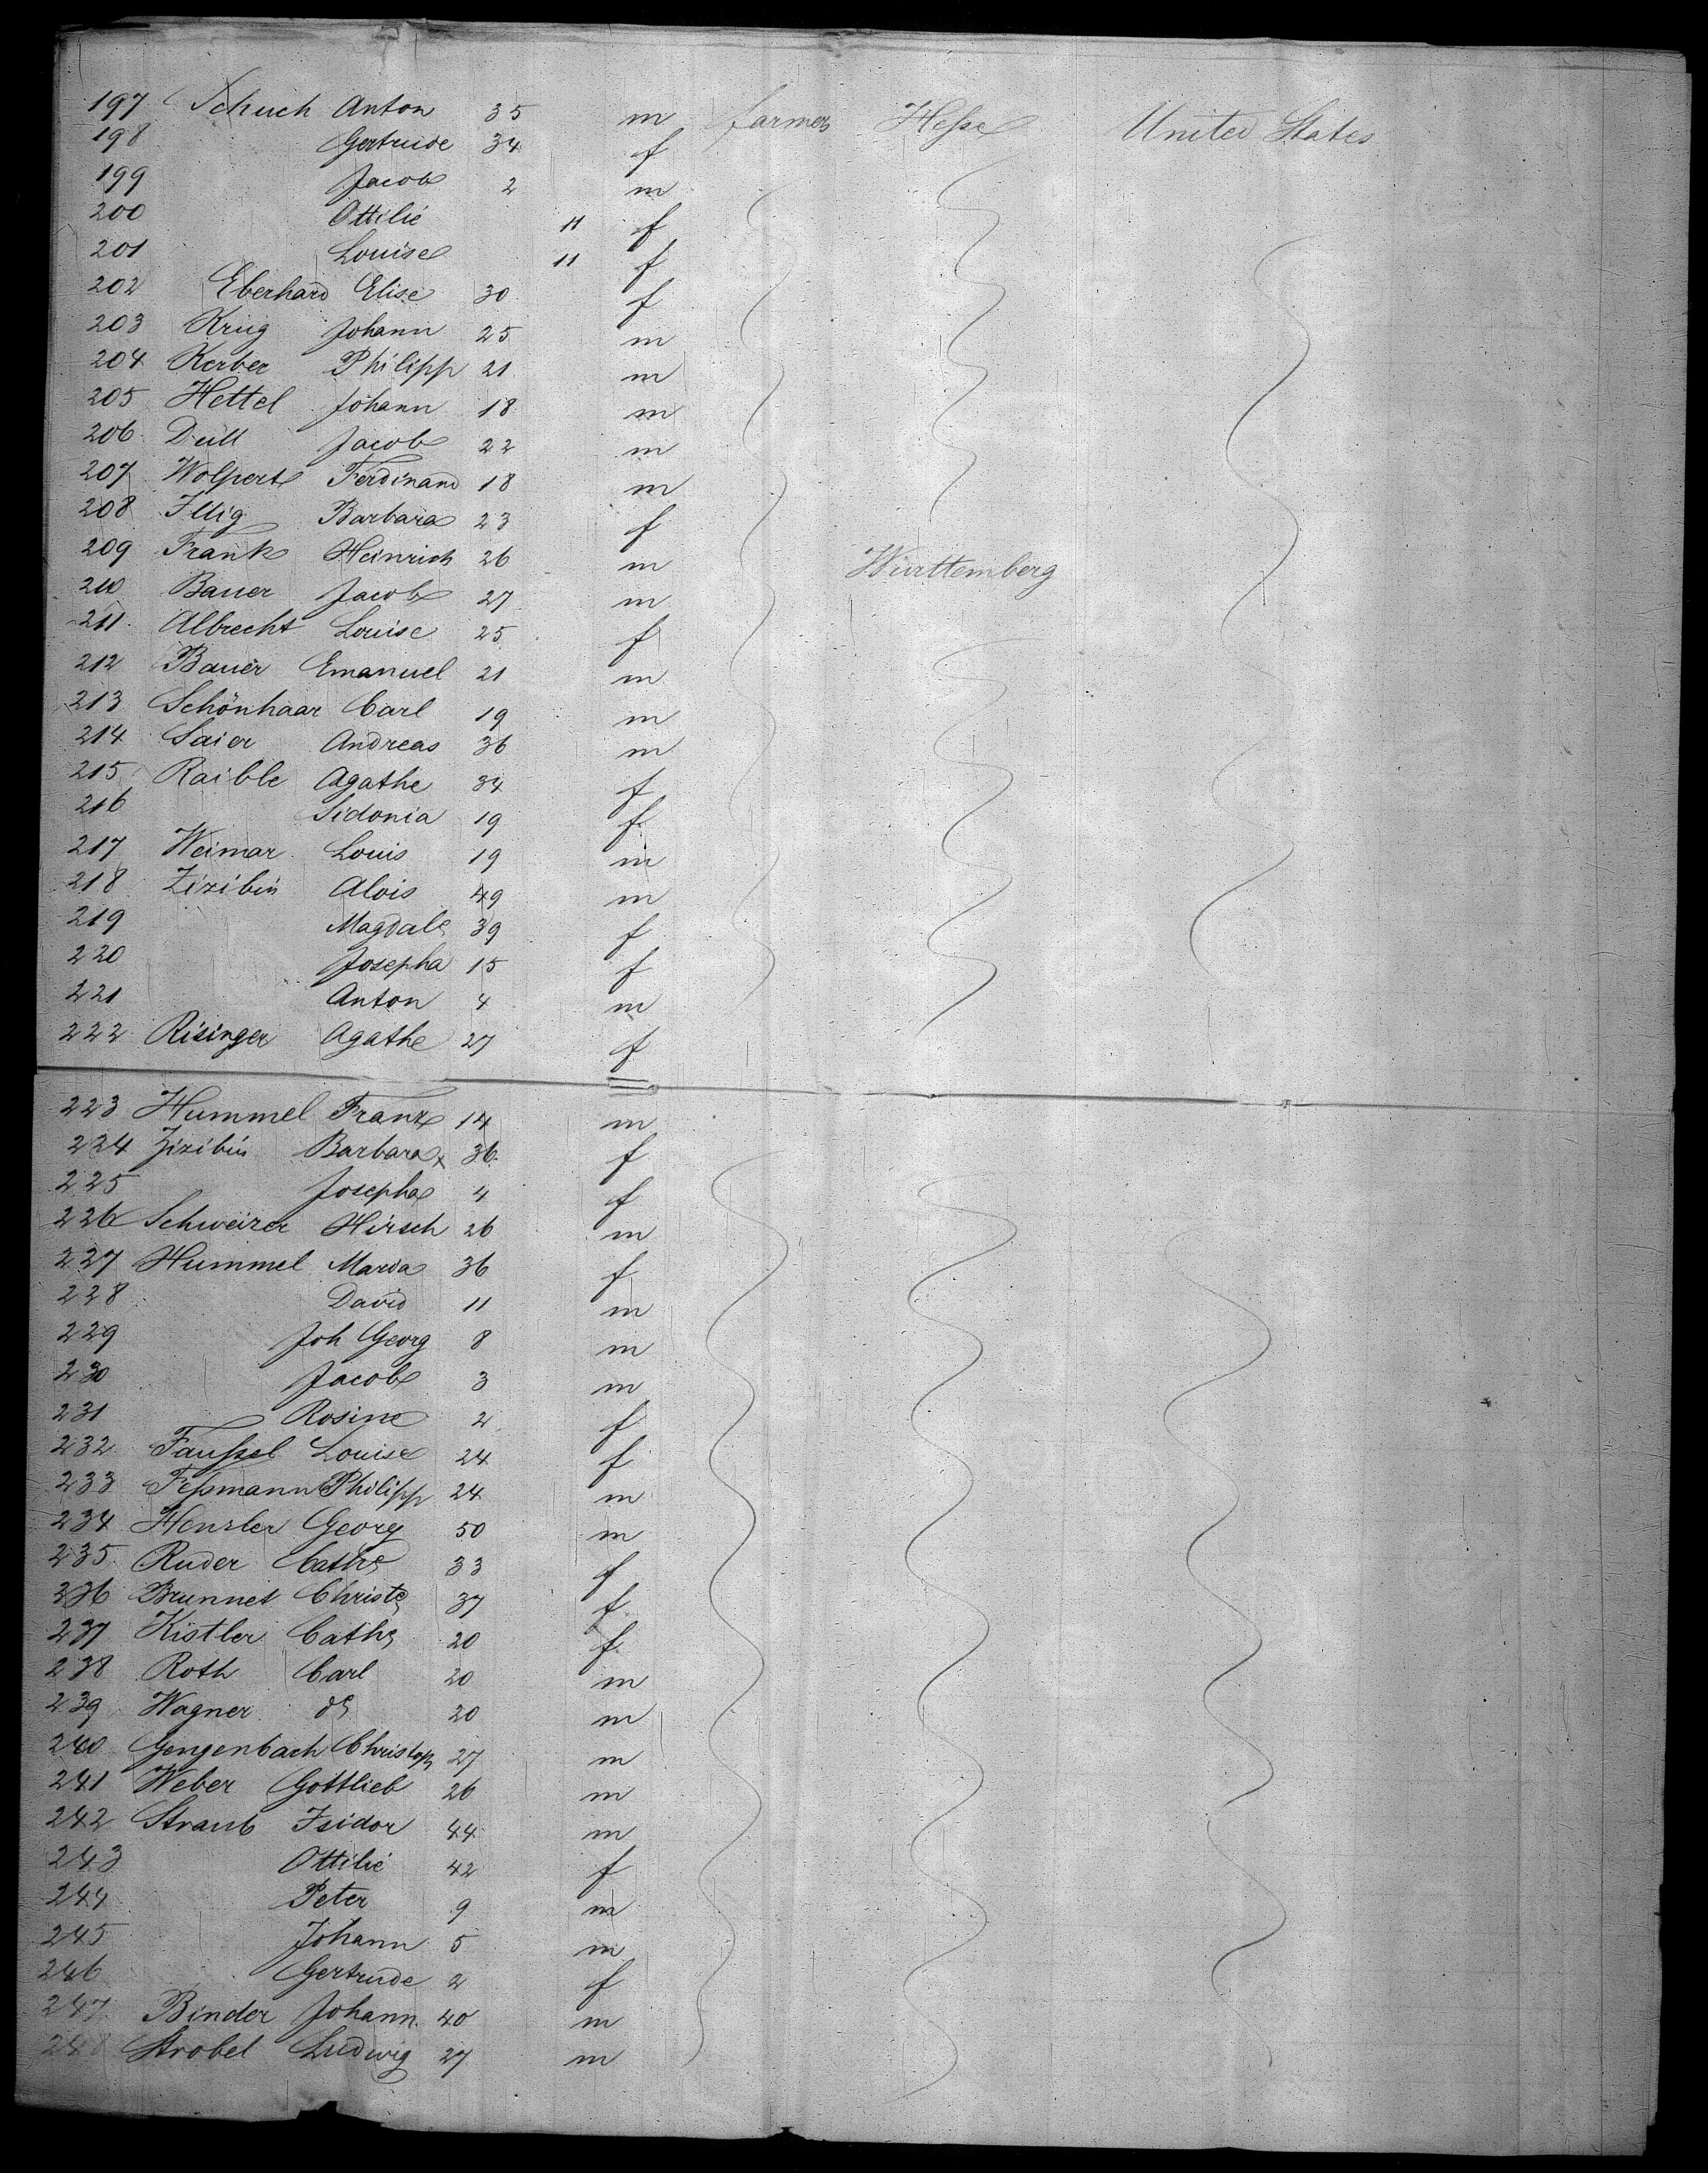 197 Schuch Anton 35 m farmers Hesse United States
198 Gertrude 34 f
199 Jacob 2 m
200 Ottilie 11 f
201 Louise 11 f
202 Eberhard Elise 30 f
203 Krug Johann 25 m
204 Kerber Philipp 21 m
205 Hettel Johann 18 m
206 Düll Jacob 22 m
207 Wolpert Ferdinand 18 m
208 Illig Barbara 23 f
209 Frank Heinrich 26 m Württemberg
210 Bauer Jacob 27 m
211 Albrecht Louise 25 f
212 Bauer Emanuel 21 m
213 Schönhaar Carl 19 m
214 Saier Andreas 36 m
215 Raible Agathe 34 f
216 Sidonia 19 f
217 Weimar Louis 19 m
218 Zizibin Alois 49 m
219 Magdale 39 f
220 Josepha 15 f
221 Anton 4 m
222 Risinger Agathe 27 f
223 Hummel Franz 14 m
224 Zizibin Barbara 36 f
225 Josepha 4 f
226 Schweizer Hirsch 26 m
227 Hummel Maria 36 f
228 David 11 m
229 Joh Georg 8 m
230 Jacob 3 m
231 Rosine 2 f
232 Faußel Louise 24 f
233 Feßmann Philipp 24 m
234 Hensler Georg 50 m
235 Ruder Cathe 33 f
236 Brunnet Christe 37 f
237 Kistler Cathe 20 f
238 Roth Carl 20 m
239 Wagner do 20 m
240 Gengenbach Christoph 27 m
241 Weber Gottlieb 26 m
242 Straub Isidor 44 m
243 Ottilie 42 f
244 Peter 9 m
245 Johann 5 m
246 Gertrude 2 f
247 Binder Johann 40 m
248 Strobel Ludwig 27 m